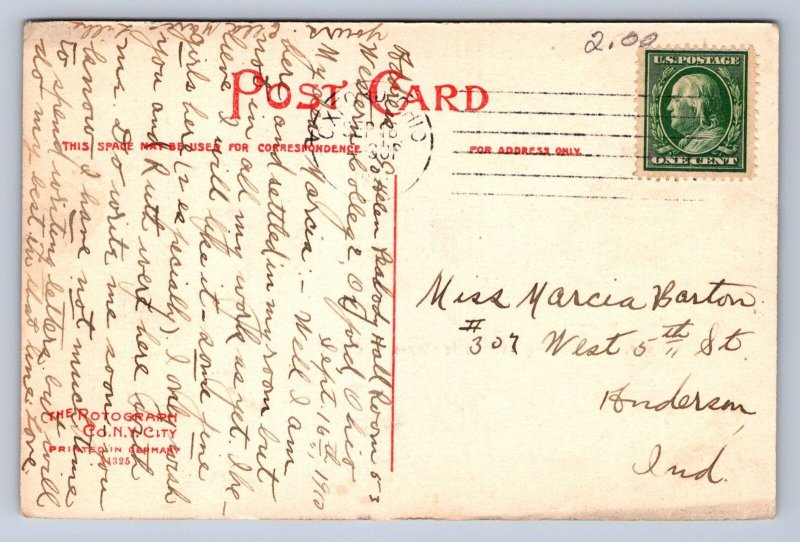 2.00
U.S. POSTAGE
ONE CENT
POST CARD
THIS SPACE MAY BE USED FOR CORRESPONDENCE
FOR ADDRESS ONLY.
OHIO
Helen Peabody Hall Room 53
Western College, Oxford, Ohio
Sept. 16th, 1910
My dear Marcia:- Well I am
here and settled in my room but
not in all my work as yet. I be-
lieve I will like it - some fine
girls here (2 especially). I only wish
you and Ruth were here with
me. Do write me soon. you
know I have not much time
to spend writing letters but will
do my best in that line. Love,
Yours
Miss Marcia Barton
#307 West 5th St.
Anderson,
Ind.
THE ROTOGRAPH
CO. N.Y. CITY
PRINTED IN GERMANY